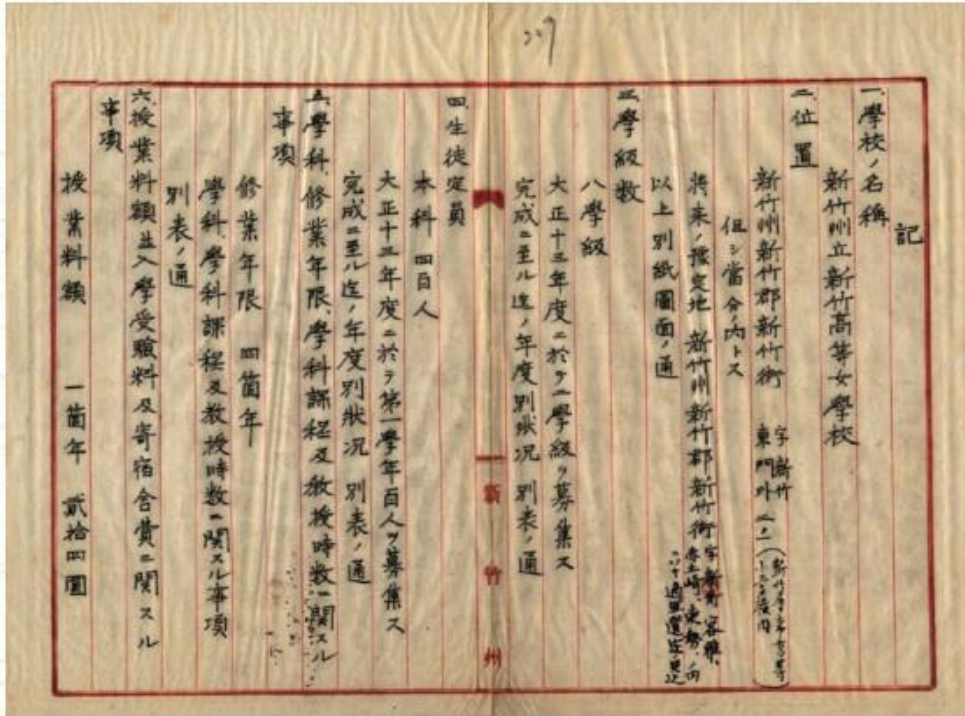 249
記
一、學校ノ名稱
新竹州立新竹高等女學校
二、位置
新竹州新竹郡新竹街 字新竹東門外
但シ當分ノ内トス
將來ノ豫定地 新竹州新竹郡新竹街
以上別紙圖面ノ通
三、學級数
八學級
大正十三年度ニ於テ二學級ヲ募集ス
完成ニ至ル迄ノ年度別狀况 別表ノ通
四、生徒定員
本科 四百人
大正十三年度ニ於テ第一學年百人ヲ募集ス
完成ニ至ル迄ノ年度別狀况 別表ノ通
五、學科、修業年限、學科課程及教授時数ニ関スル
事項
修業年限 四箇年
學科、學科課程及教授時数ニ関スル事項
別表ノ通
六、授業料額並入學受驗料及寄宿舍費ニ関スル
事項
授業料額 一箇年 貳拾四圓
新竹州